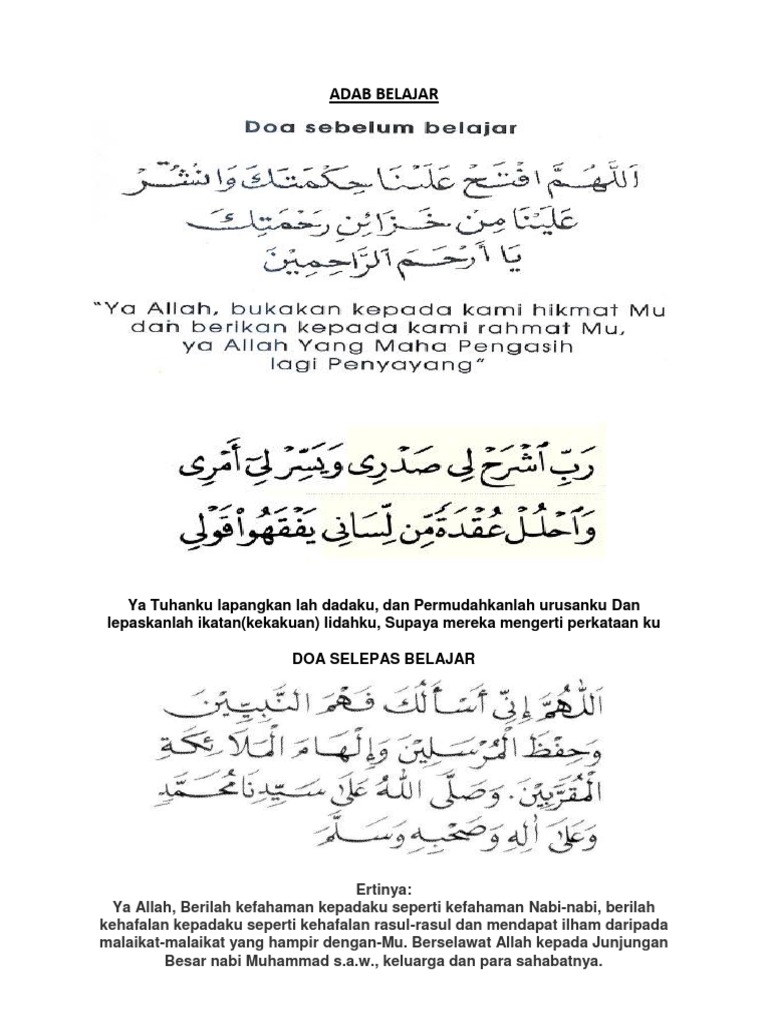 ADAB BELAJAR
Doa sebelum belajar
اَللّٰهُمَّ افْتَحْ عَلَيْنَا حِكْمَتَكَ وَانْشُرْ
عَلَيْنَا مِنْ خَزَائِنِ رَحْمَتِكَ
يَا أَرْحَمَ الرَّاحِمِيْنَ
"Ya Allah, bukakan kepada kami hikmat Mu
dan berikan kepada kami rahmat Mu,
ya Allah Yang Maha Pengasih
lagi Penyayang"
رَبِّ ٱشْرَحْ لِي صَدْرِى وَيَسِّرْ لِىٓ أَمْرِى
وَٱحْلُلْ عُقْدَةً مِّن لِّسَانِى يَفْقَهُوا۟ قَوْلِي
Ya Tuhanku lapangkan lah dadaku, dan Permudahkanlah urusanku Dan
lepaskanlah ikatan(kekakuan) lidahku, Supaya mereka mengerti perkataan ku
DOA SELEPAS BELAJAR
اَللّٰهُمَّ إِنِّي أَسْأَلُكَ فَهْمَ النَّبِيِّيْنَ
وَحِفْظَ الْمُرْسَلِيْنَ وَإِلْهَامَ الْمَلَائِكَةِ
الْمُقَرَّبِيْنَ. وَصَلَّى اللهُ عَلَى سَيِّدِنَا مُحَمَّدٍ
وَعَلَى اٰلِهِ وَصَحْبِهِ وَسَلَّمَ
Ertinya:
Ya Allah, Berilah kefahaman kepadaku seperti kefahaman Nabi-nabi, berilah
kehafalan kepadaku seperti kehafalan rasul-rasul dan mendapat ilham daripada
malaikat-malaikat yang hampir dengan-Mu. Berselawat Allah kepada Junjungan
Besar nabi Muhammad s.a.w., keluarga dan para sahabatnya.